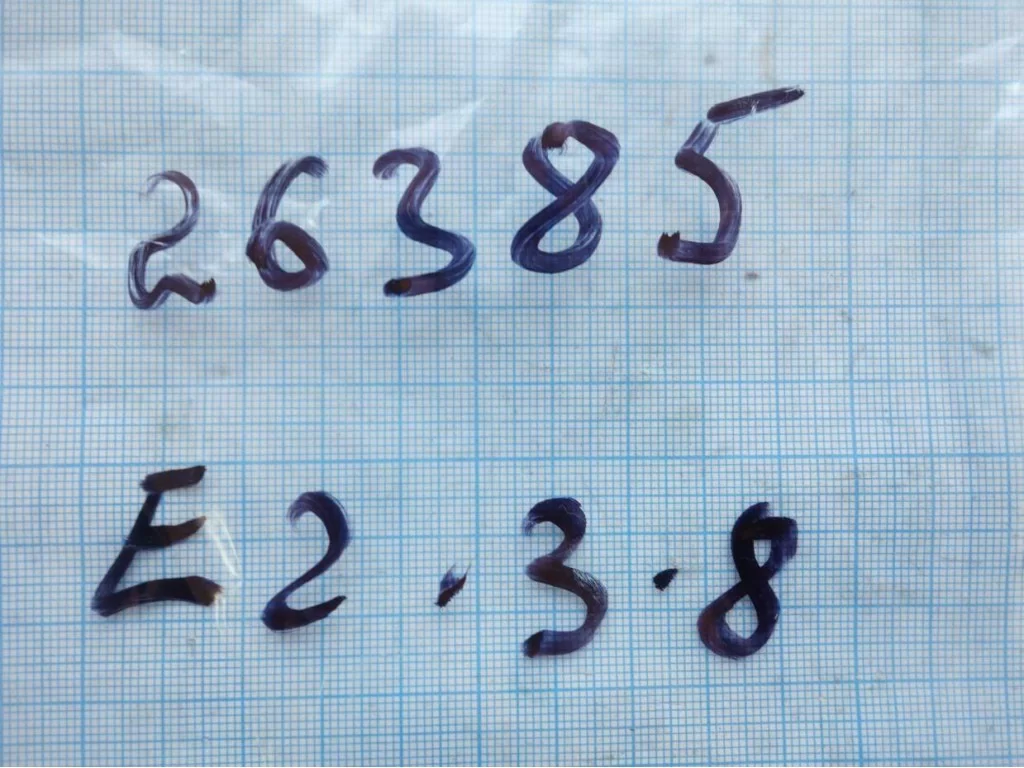 26385
E2.3.8